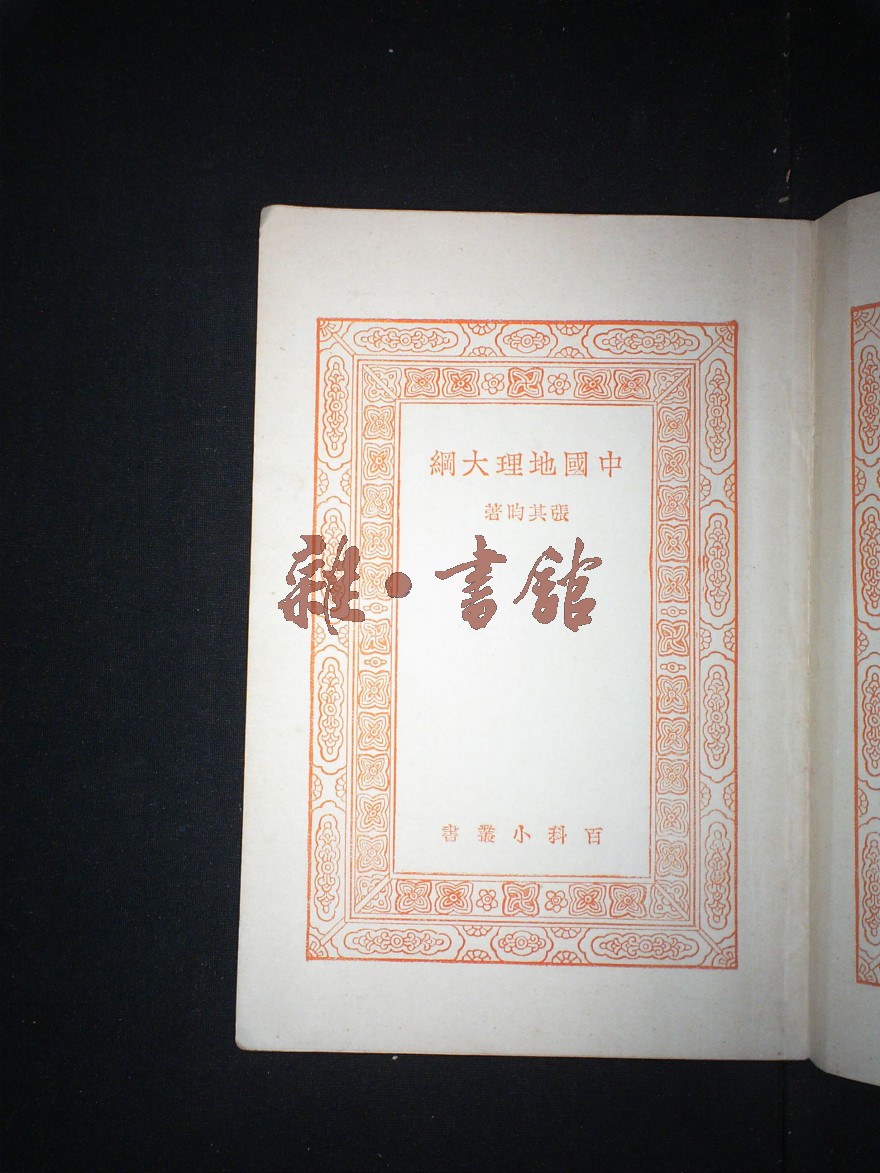 中國地理大綱
張其昀著
雜·書館
百科小叢書